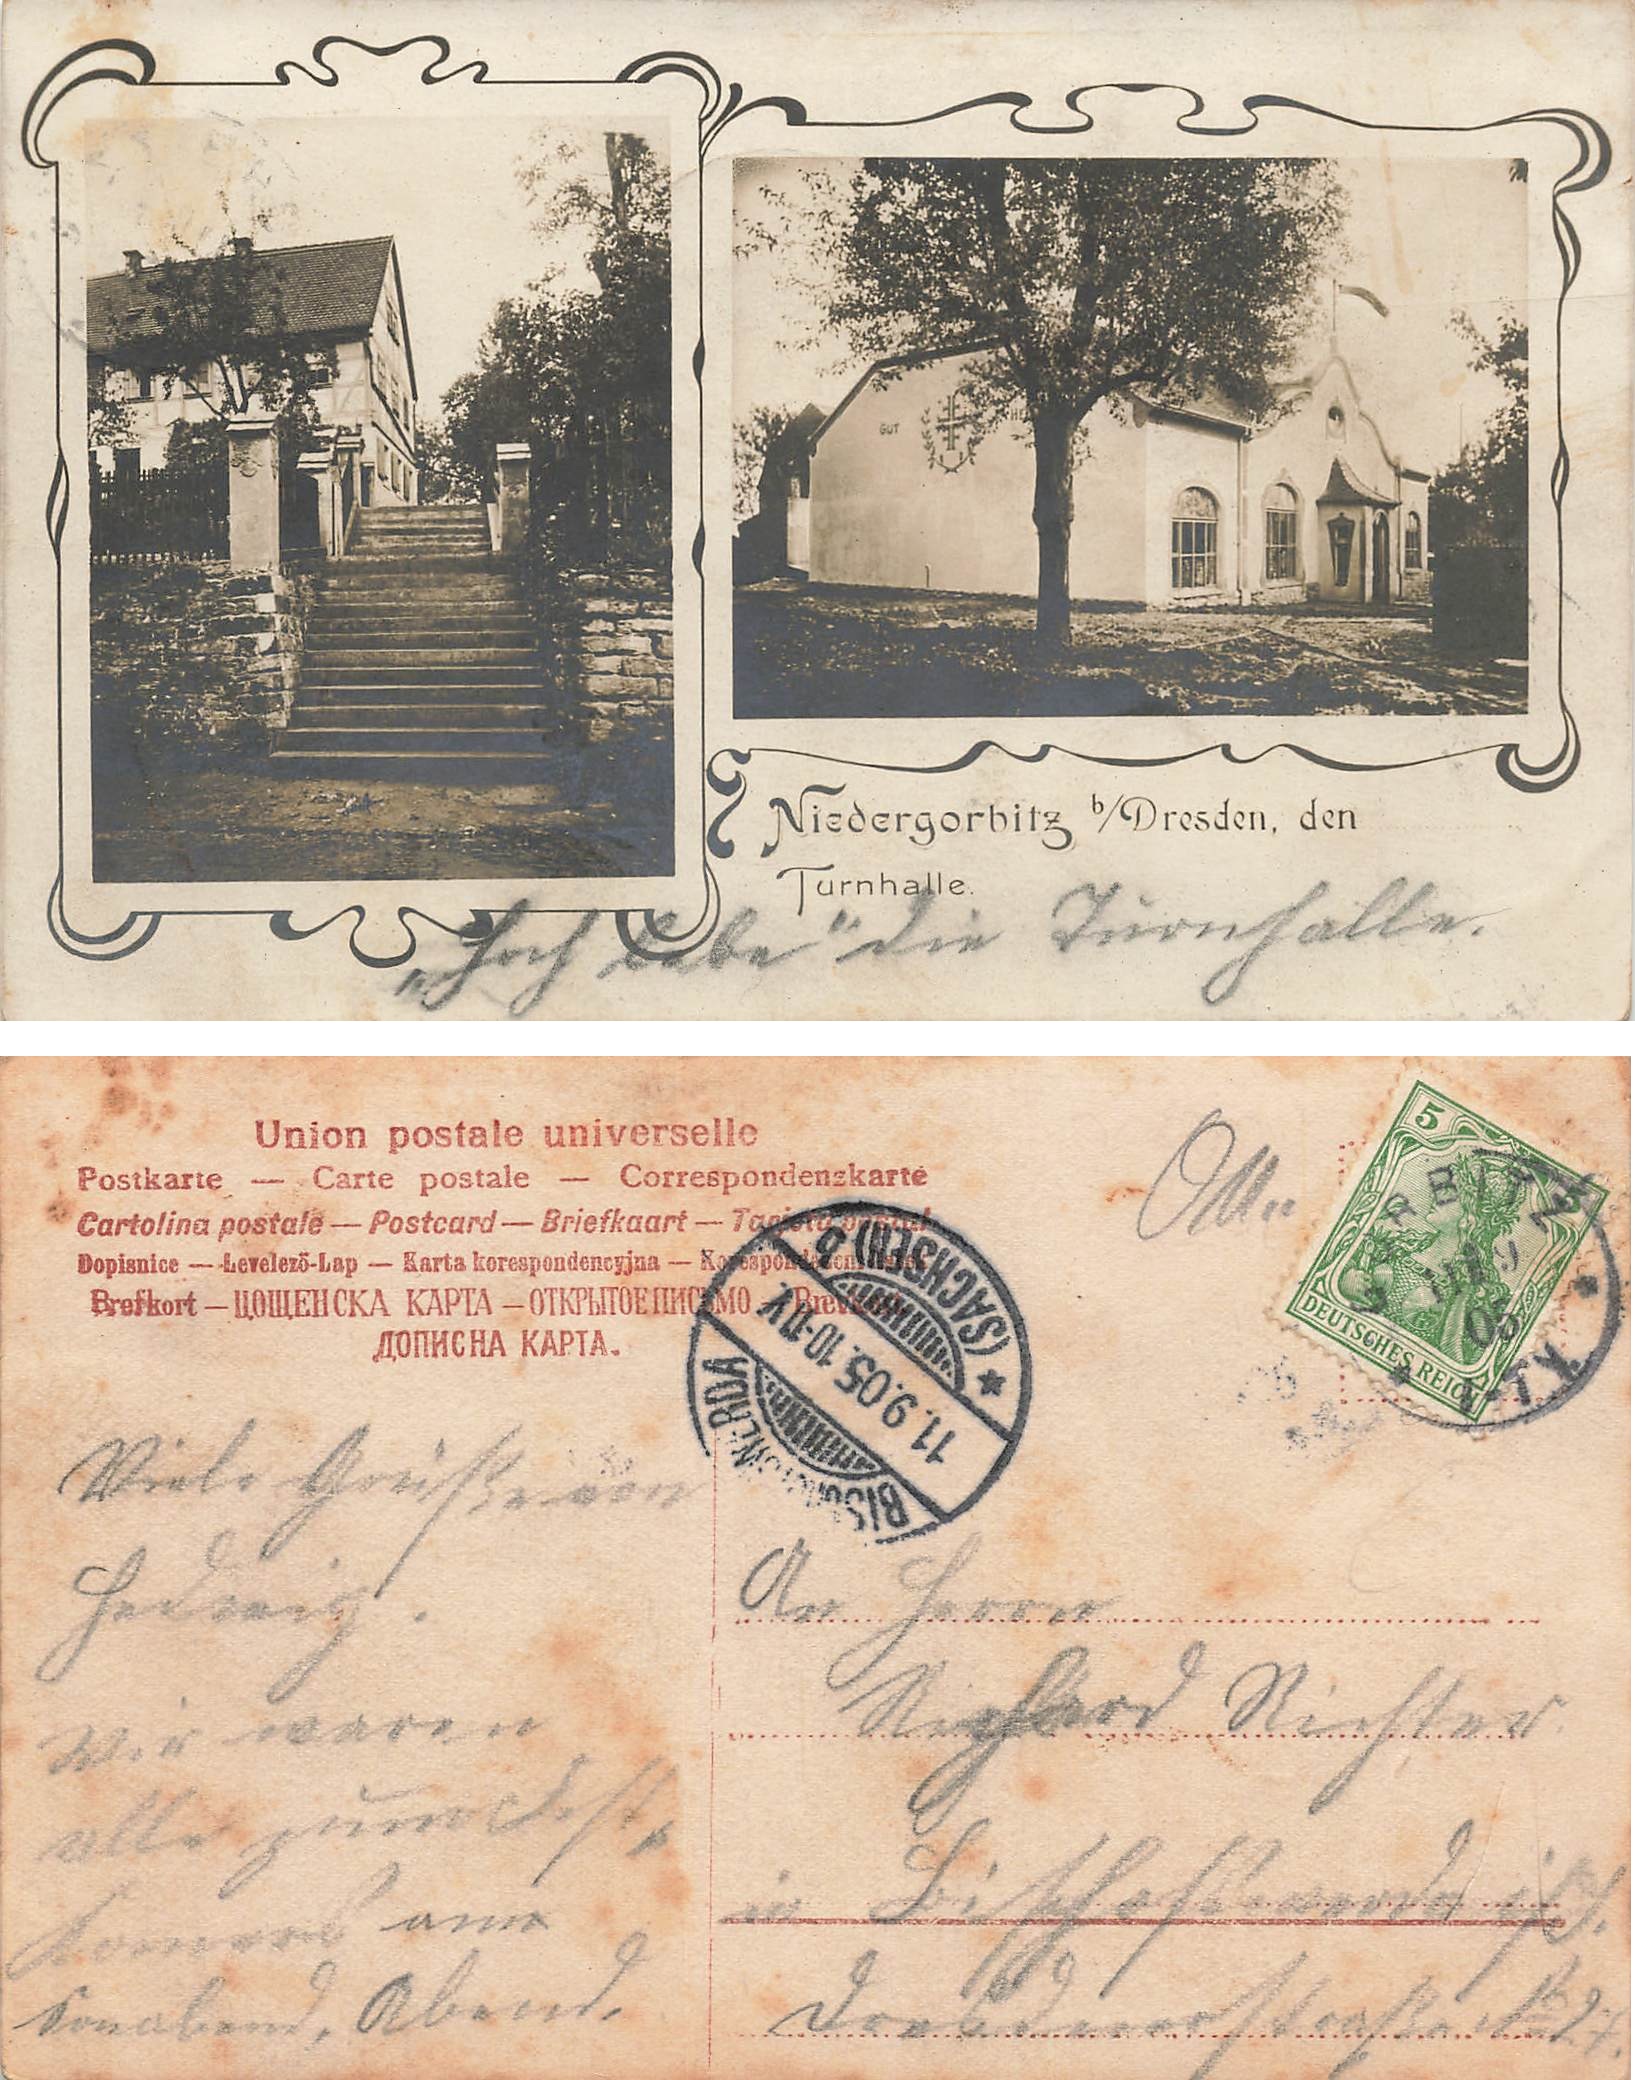 GUT
HE
Niedergorbitz b/Dresden, den
Turnhalle.
„Hoch lebe" die Turnhalle.
Union postale universelle
Postkarte — Carte postale — Correspondenzkarte
Cartolina postale — Postcard — Briefkaart — Tarjeta postal
Dopisnice — Levelező-Lap — Karta korespondencyjna —
Brefkort — ЦОЩЕНСКА КАРТА — ОТКРЫТОЕ ПИСЬМО —
ДОПИСНА КАРТА.
5 5
DEUTSCHES REICH
GORBITZ
05
BISCHOFSWERDA
11.9.05.10-11V.
(SACHSEN) b
Viele Grüße von
Hedwig.
Wir waren
alle zum Fest,
Kommers am
Sonnabend, Abend.
An Herrn
Richard Richter
in Bischofswerda i/S.
Dresdenerstraße No